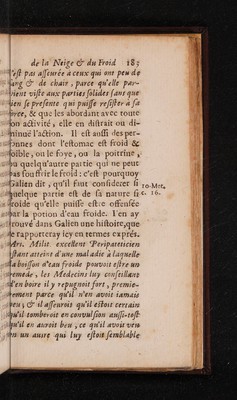 de la Neige & du Froid 183
'est pas asseurée à ceux qui ont peu de
ang & de chair, parce qu'elle par-
ient viste aux parties solides sans que
ien se presente qui puisse resister à sa
orce, & que les abordant avec toute
on activité, elle en distrait ou di-
inuë l'action. Il est aussi des per-
onnes dont l'estomac est froid &
oible, ou le foye, ou la poitrine,
u quelqu'autre partie qui ne peut
as souffrir le froid: c'est pourquoy
Galien dit, qu'il faut considerer si
quelque partie est de sa nature si
froide qu'elle puisse estre offensée
ar la potion d'eau froide. I'en ay
rouvé dans Galien une histoire, que
e rapporteray icy en termes exprés.
Art. Milit. excellent Peripateticien
stant atteint d'une maladie à laquelle
a boisson d'eau froide pouvoit estre un
emede, les Medecins luy conseillant
d'en boire il y repugnoit fort, premie-
rement parce qu'il n'en avoit iamais
eu, & il asseuroit qu'il estoit certain
qu'il tomberoit en convulsion aussi-tost
qu'il en auroit beu, ce qu'il avoit veu
n un autre qui luy estoit semblable
10. Met.
c. 16.